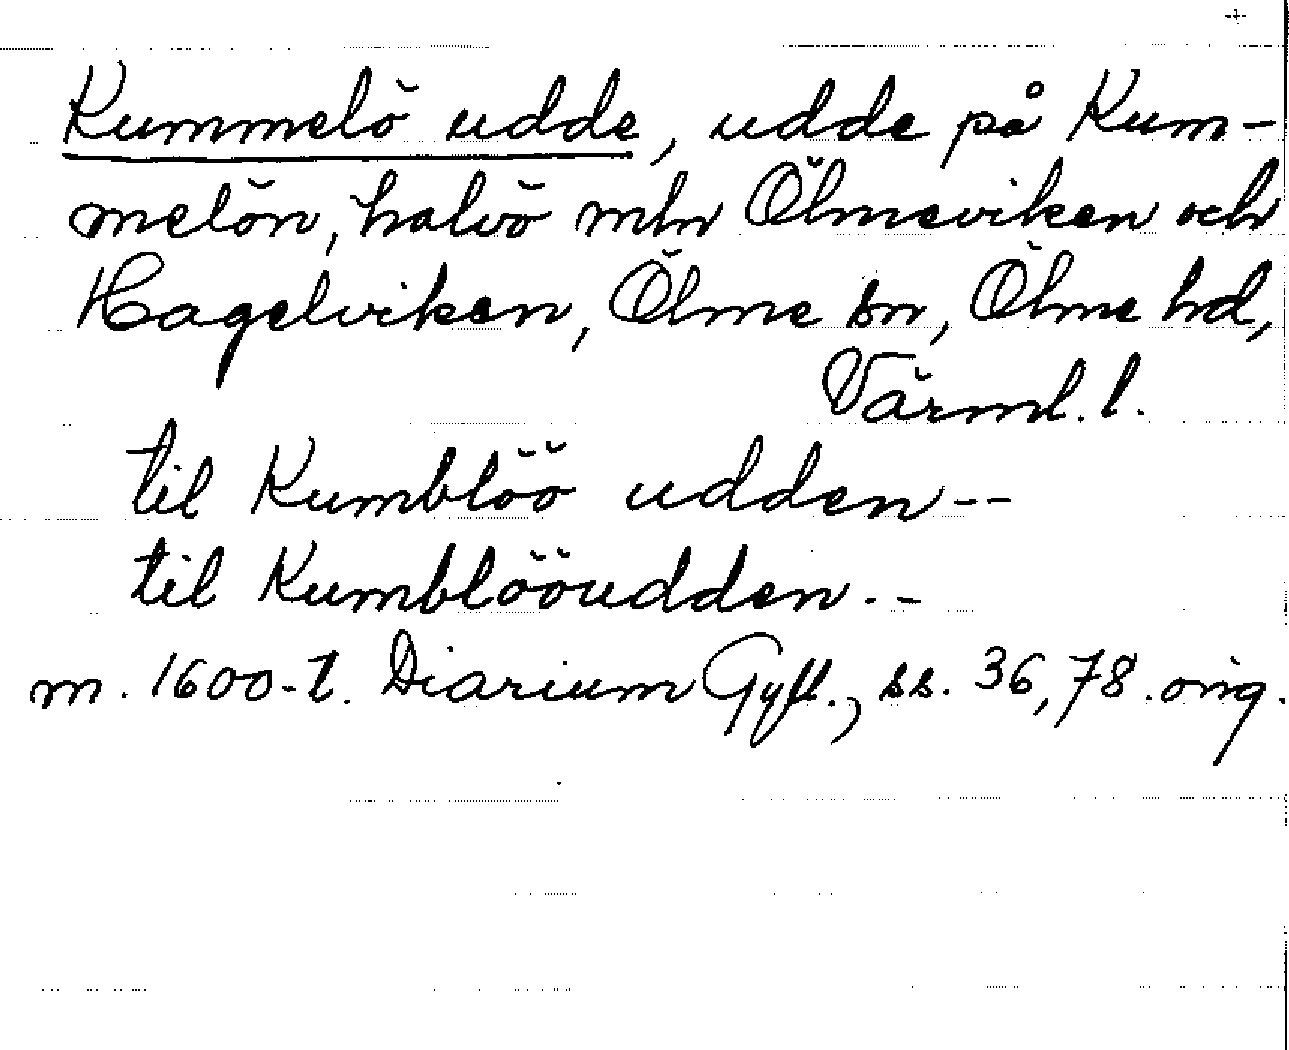 Kummelö udde, udde på Kum-
melön, halvö mln Ölmeviken och
Hagelviken, Ölme sn, Ölme hd,
Värml. l.
til Kumblöö udden--
til Kumblööudden.--
m. 1600-t. Diarium Gyll., ss. 36, 78. orig.